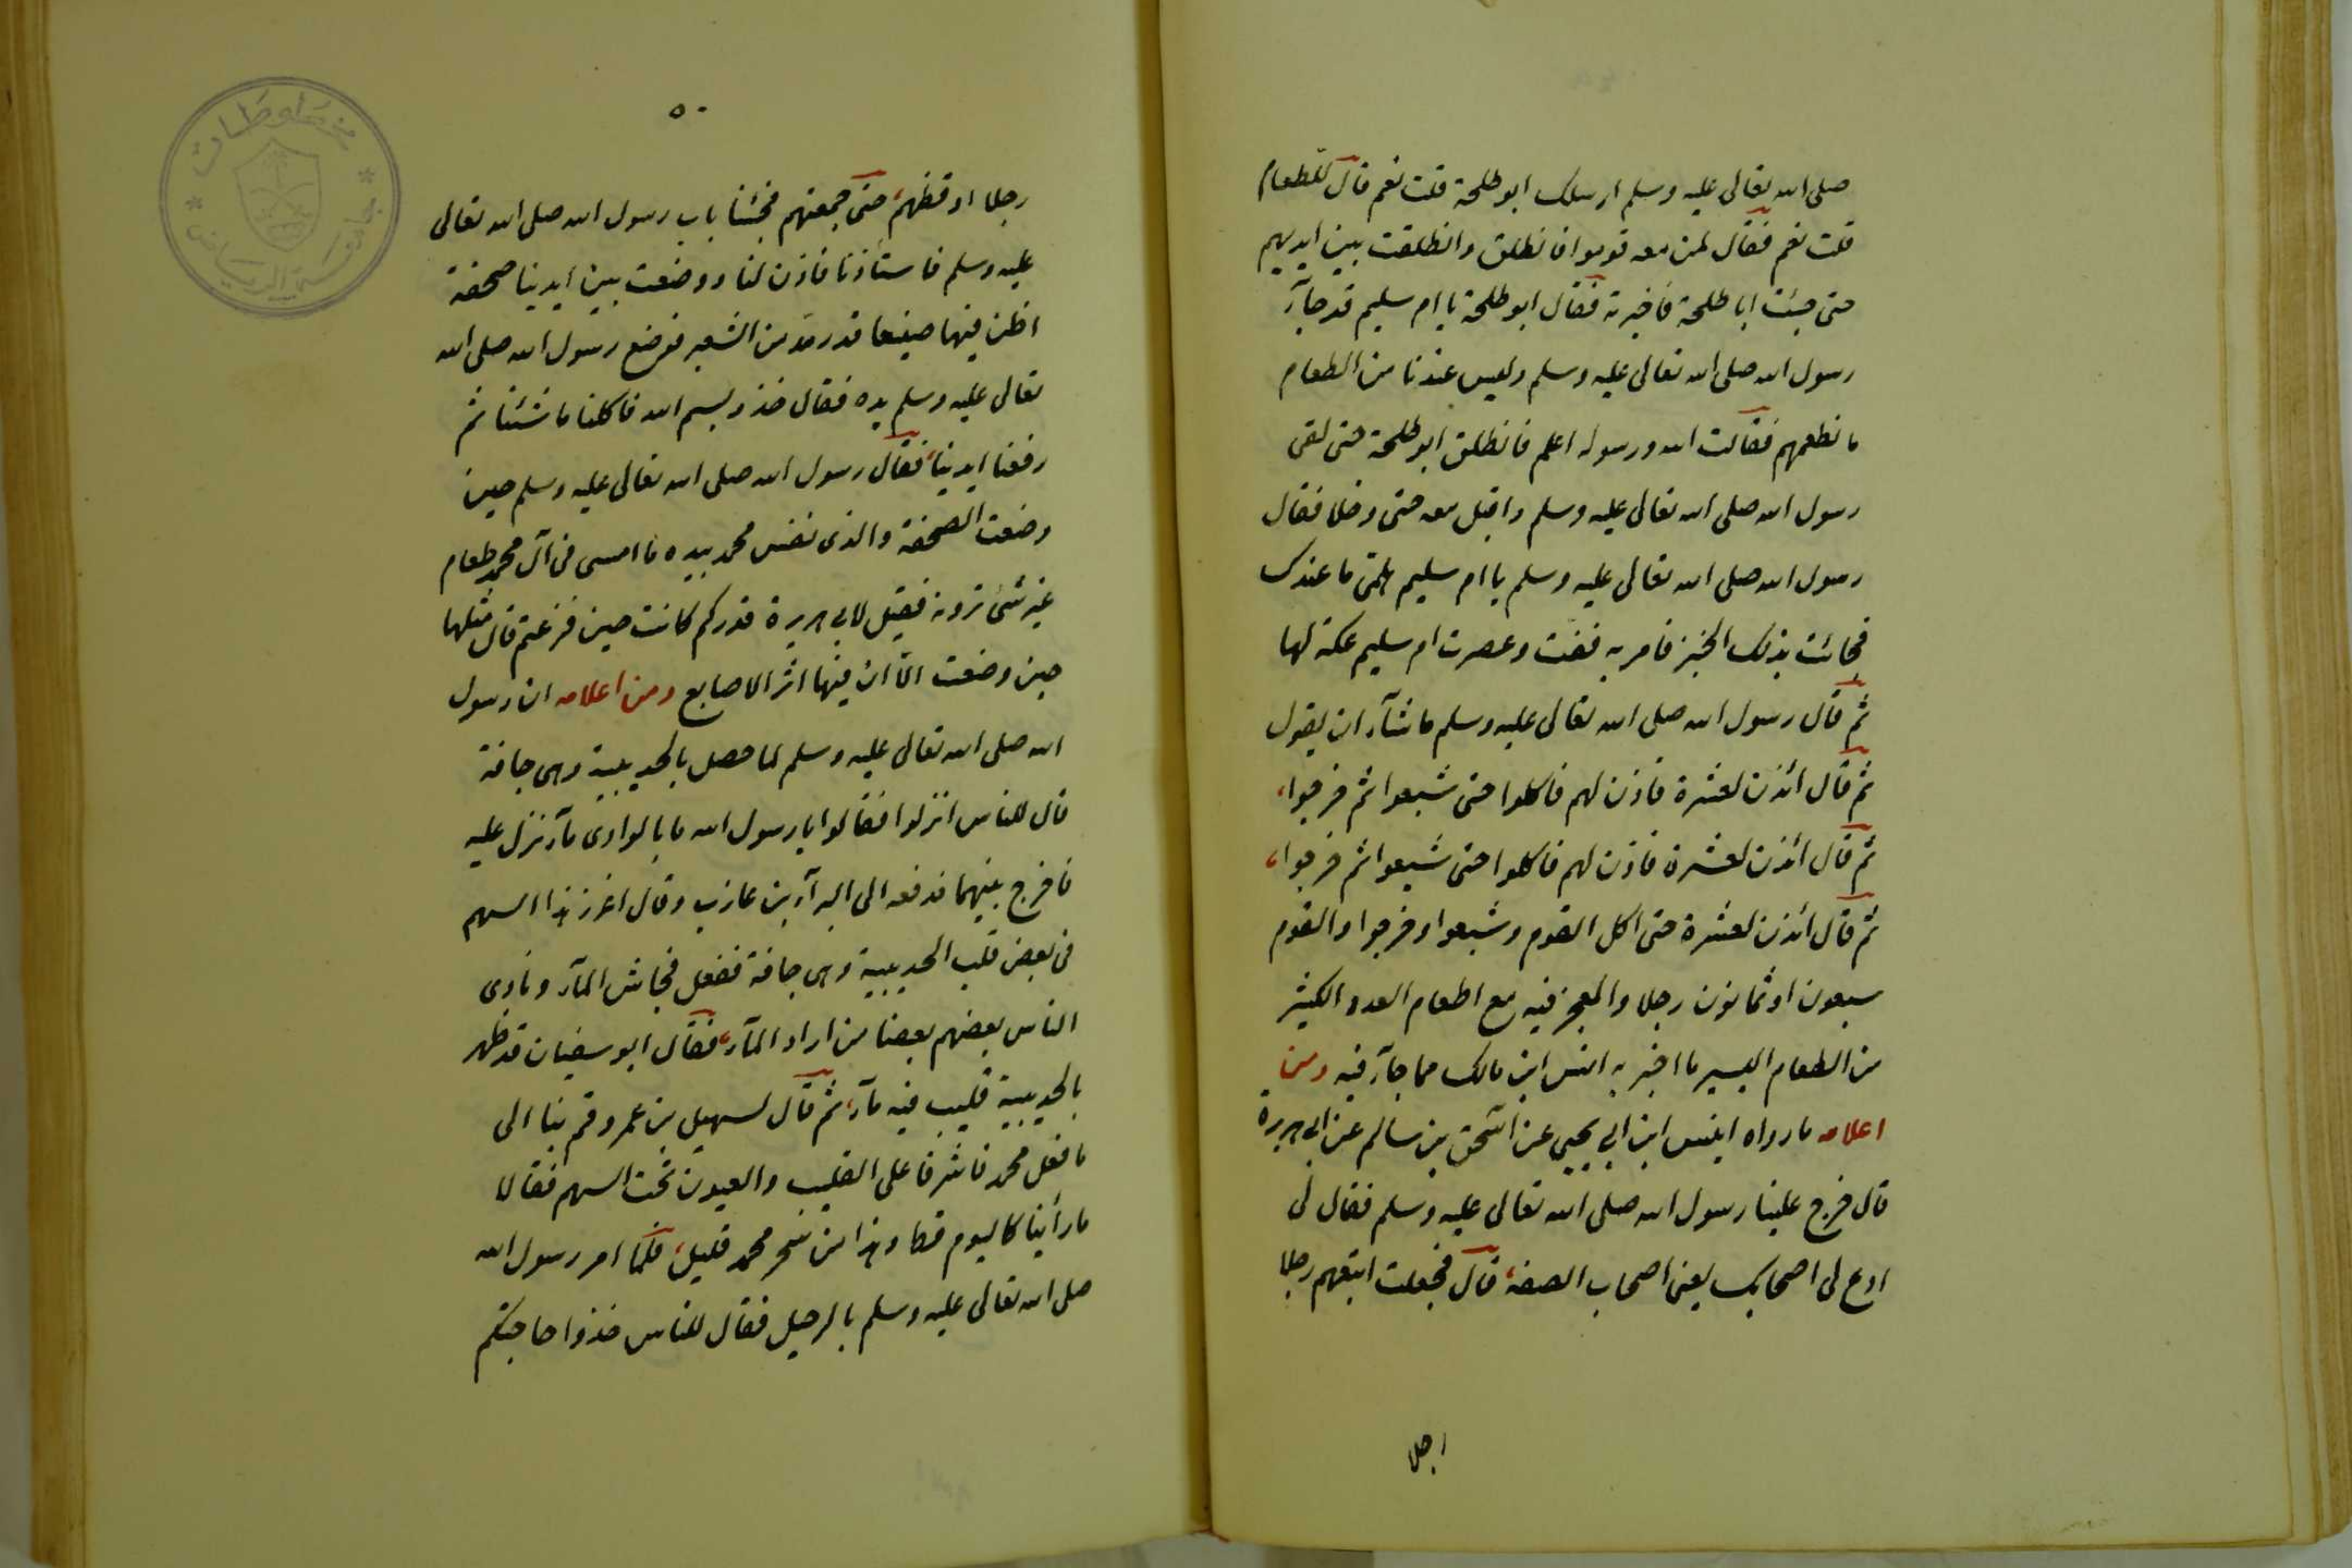 صلى الله تعالى عليه وسلم ارسلك ابو طلحة قلت نعم قال للطعام
قلت نعم فقال لمن معه قوموا فانطلق وانطلقت بين ايديهم
حتى جئت ابا طلحة فاخبرته فقال ابو طلحة يا ام سليم قد جآء
رسول الله صلى الله تعالى عليه وسلم وليس عندنا من الطعام
ما نطعمهم فقالت الله ورسوله اعلم فانطلق ابو طلحة حتى لقى
رسول الله صلى الله تعالى عليه وسلم واقبل معه حتى دخلا فقال
رسول الله صلى الله تعالى عليه وسلم يا ام سليم هلمى ما عندك
فجائت بذلك الخبز فامر به ففت وعصرت ام سليم عكة لها
ثم قال رسول الله صلى الله تعالى عليه وسلم ما شآء ان يقول
ثم قال ائذن لعشرة فاذن لهم فاكلوا حتى شبعوا ثم خرجوا،
ثم قال ائذن لعشرة فاذن لهم فاكلوا حتى شبعوا ثم خرجوا،
ثم قال ائذن لعشرة حتى اكل القوم وشبعوا وخرجوا والقوم
سبعون او ثمانون رجلا والمعجز فيه مع اطعام العدد الكثير
من الطعام اليسير ما اخبر به انس ابن مالك مما جآء فيه ومن
اعلامه ما رواه انيس ابن ابي يحيى عن اسحق بن سالم عن ابي هريرة
قال خرج علينا رسول الله صلى الله تعالى عليه وسلم فقال لى
ادع لى اصحابك يعنى اصحاب الصفة، قال فجعلت اتبعهم رجلا
رجلا
٥٠
رجلا اوقظهم، حتى جمعتهم فجئنا باب رسول الله صلى الله تعالى
عليه وسلم فاستأذنا فاذن لنا ووضعت بين ايدينا صحفة
اظن فيها صنيعا قدر مد من الشعير فوضع رسول الله صلى الله
تعالى عليه وسلم يده فقال خذوا بسم الله فاكلنا ما شئنا ثم
رفعنا ايدينا، فقال رسول الله صلى الله تعالى عليه وسلم حين
وضعت الصحفة والذى نفس محمد بيده ما امسى فى آل محمد طعام
غير شئ ترونه فقيل لابي هريرة قدر كم كانت حين فرغتم قال مثلها
حين وضعت الا ان فيها اثر الاصابع ومن اعلامه ان رسول
الله صلى الله تعالى عليه وسلم لما حصل بالحديبية وهى جافة
قال للناس انزلوا فقالوا يا رسول الله ما بالوادى مآء ننزل عليه
فاخرج سهما فدفعه الى البرآء بن عازب وقال اغرز هذا السهم
فى بعض قلب الحديبية وهى جافة ففعل فجاش المآء ونادى
الناس بعضهم بعضا من اراد المآء، فقال ابو سفيان قد ظهر
بالحديبية قليب فيه مآء، ثم قال لسهيل بن عمرو قم بنا الى
ما فعل محمد فاشرفا على القليب والعيون تحت السهم فقالا
ما رأينا كاليوم قط وهذا من سحر محمد قليل، فلما امر رسول الله
صلى الله تعالى عليه وسلم بالرحيل فقال للناس خذوا حاجتكم